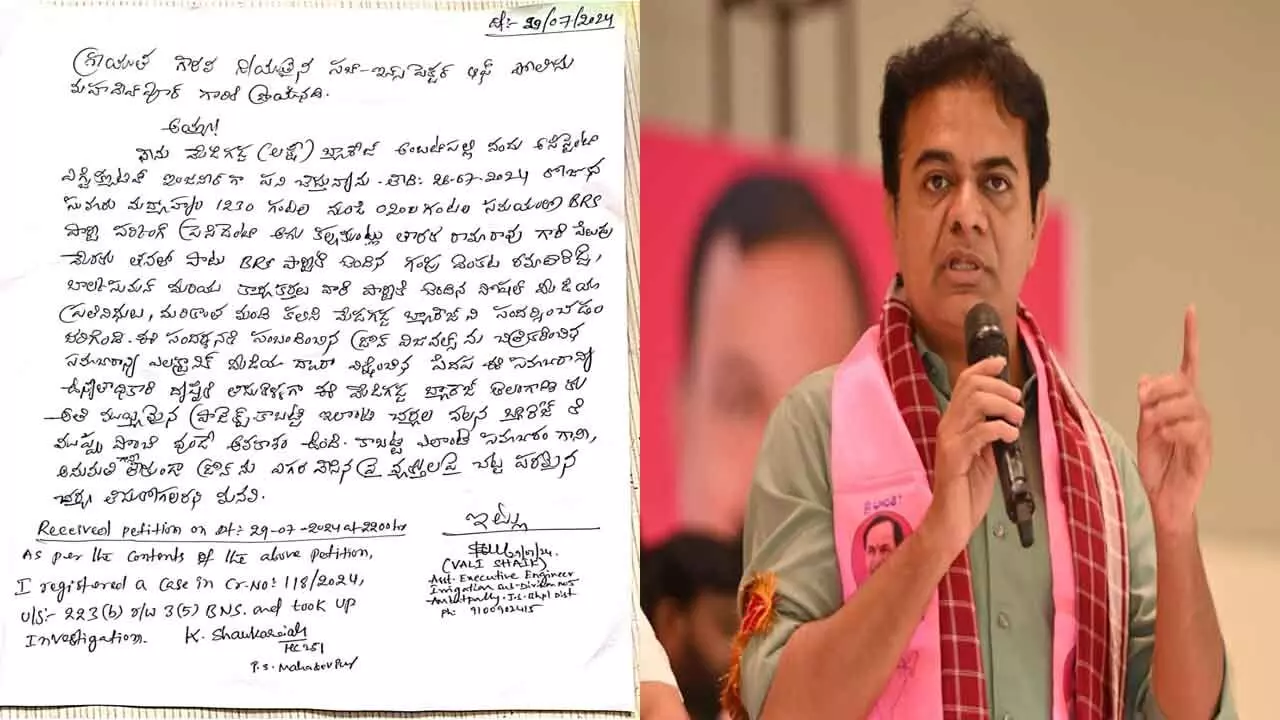 తే:- 29/07/2024
గౌరవ సబ్-ఇన్స్పెక్టర్ ఆఫ్ పోలీసు
మహదేవ్‌పూర్ గారికి వ్రాయునది.
అయ్యా!
నేను మేడిగడ్డ (లక్ష్మి) బ్యారేజ్ అంబటిపల్లి నందు అసిస్టెంట్
ఎగ్జిక్యూటివ్ ఇంజనీర్ గా పని చేస్తున్నాను. తారి: 26-07-2024 రోజున
సుమారు మధ్యాహ్నం 1230 గంటల నుండి సమయంలో BRS
పార్టీ వర్కింగ్ ప్రెసిడెంట్ తారక రామారావు గారి
తనతో పాటు BRS పార్టీకి చెందిన గండ్ర వెంకట రమణారెడ్డి,
బాల్క సుమన్ మరియు పార్టీకి చెందిన సోషల్ మీడియా
ప్రతినిధులు, మరికొంత మంది కలిసి మేడిగడ్డ బ్యారేజ్ ని సందర్శించడం
జరిగింది. ఈ సందర్శనకి సంబంధించిన డ్రోన్ విజువల్స్ ను చిత్రీకరించిన
సమాచారాన్ని ఎలక్ట్రానిక్ మీడియా ద్వారా ఈ సమాచారాన్ని
ఉన్నతాధికారి దృష్టికి ఈ మేడిగడ్డ బ్యారేజ్ తెలంగాణ కు
అతి ముఖ్యమైన ప్రాజెక్ట్ కాబట్టి ఇలాంటి చర్యల వలన బ్యారేజ్ కి
ముప్పు ఉండే అవకాశం ఉంది. కాబట్టి ఎలాంటి సమాచారం గాని,
అనుమతి లేకుండా డ్రోన్ ను ఎగర వేసిన పై వ్యక్తులపై చట్ట పరమైన
చర్య తీసుకోగలరని మనవి.
ఇట్లు
Received petition on dt: 29-07-2024 at 2200hr
As per the contents of the above petition,
I registered a case in Cr.No: 118/2024,
U/s:- 223(b) r/w 3(5) BNS. and took up
Investigation. K. Shankaraiah
HC 251
P.S. Mahadevpur
(VALI SHAIK)
Asst. Executive Engineer
Irrigation Sub-Division No5
Ambatpally, J.S. Bhpl Dist
Ph: 9100902415